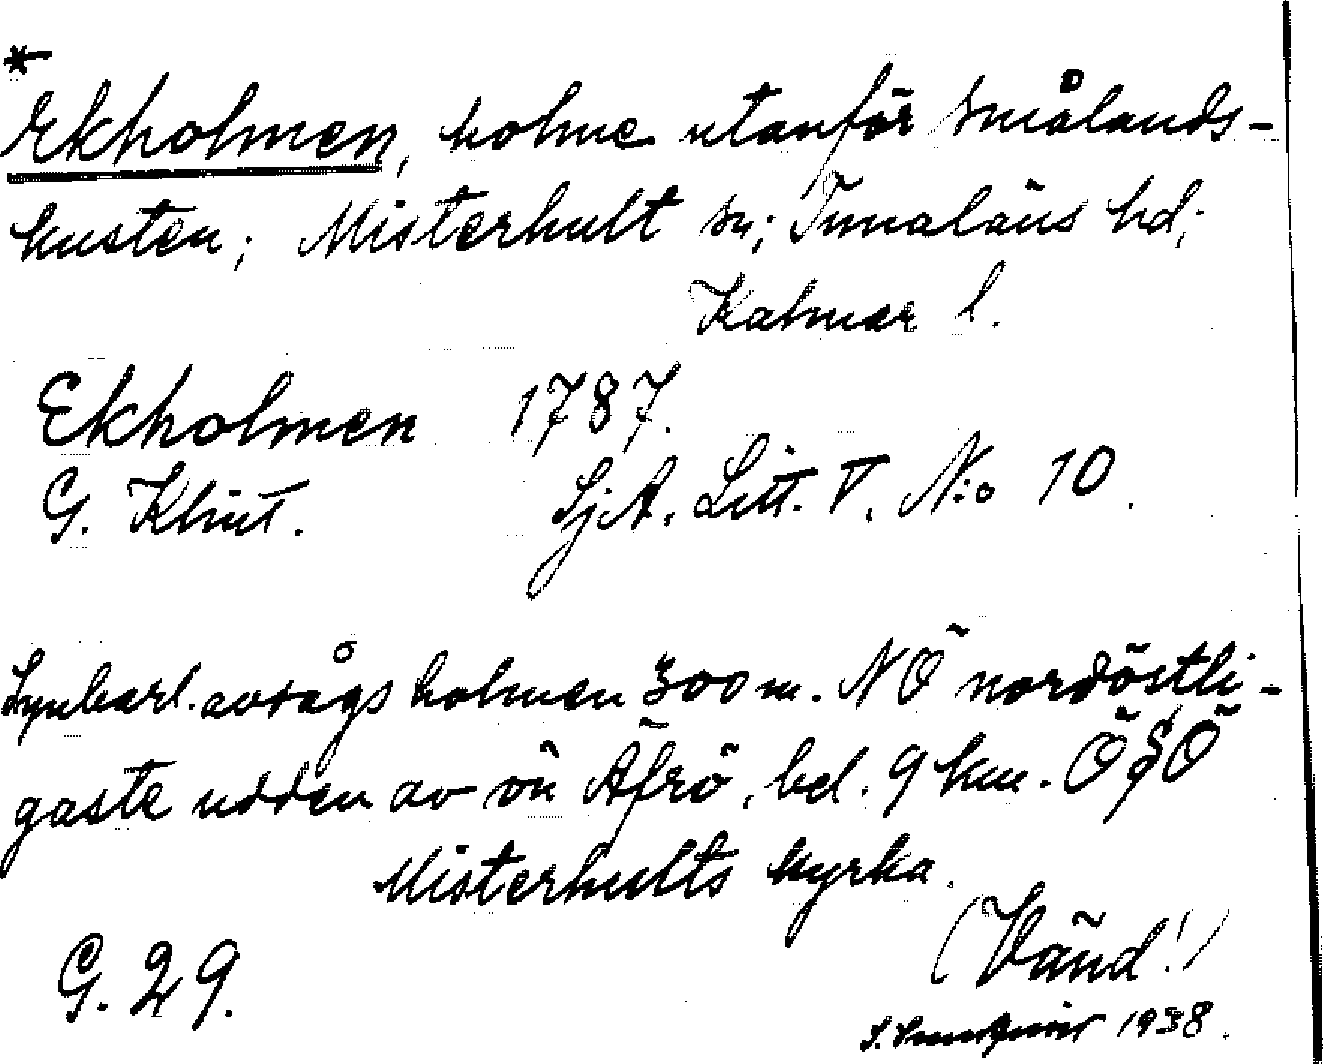 *
Ekholmen, holme utanför Smålands-
kusten; Misterhult sn; Tunaläns hd;
Kalmar l.
Ekholmen 1787.
G. Klint. SjA. Litt. V. N:o 10.
Synbarl. avsågs holmen 300 m. NÖ nordöstli-
gaste udden av ön Äfrö, bel. 9 km. ÖSÖ
Misterhults kyrka.
(Vänd!)
G. 29.
1938.